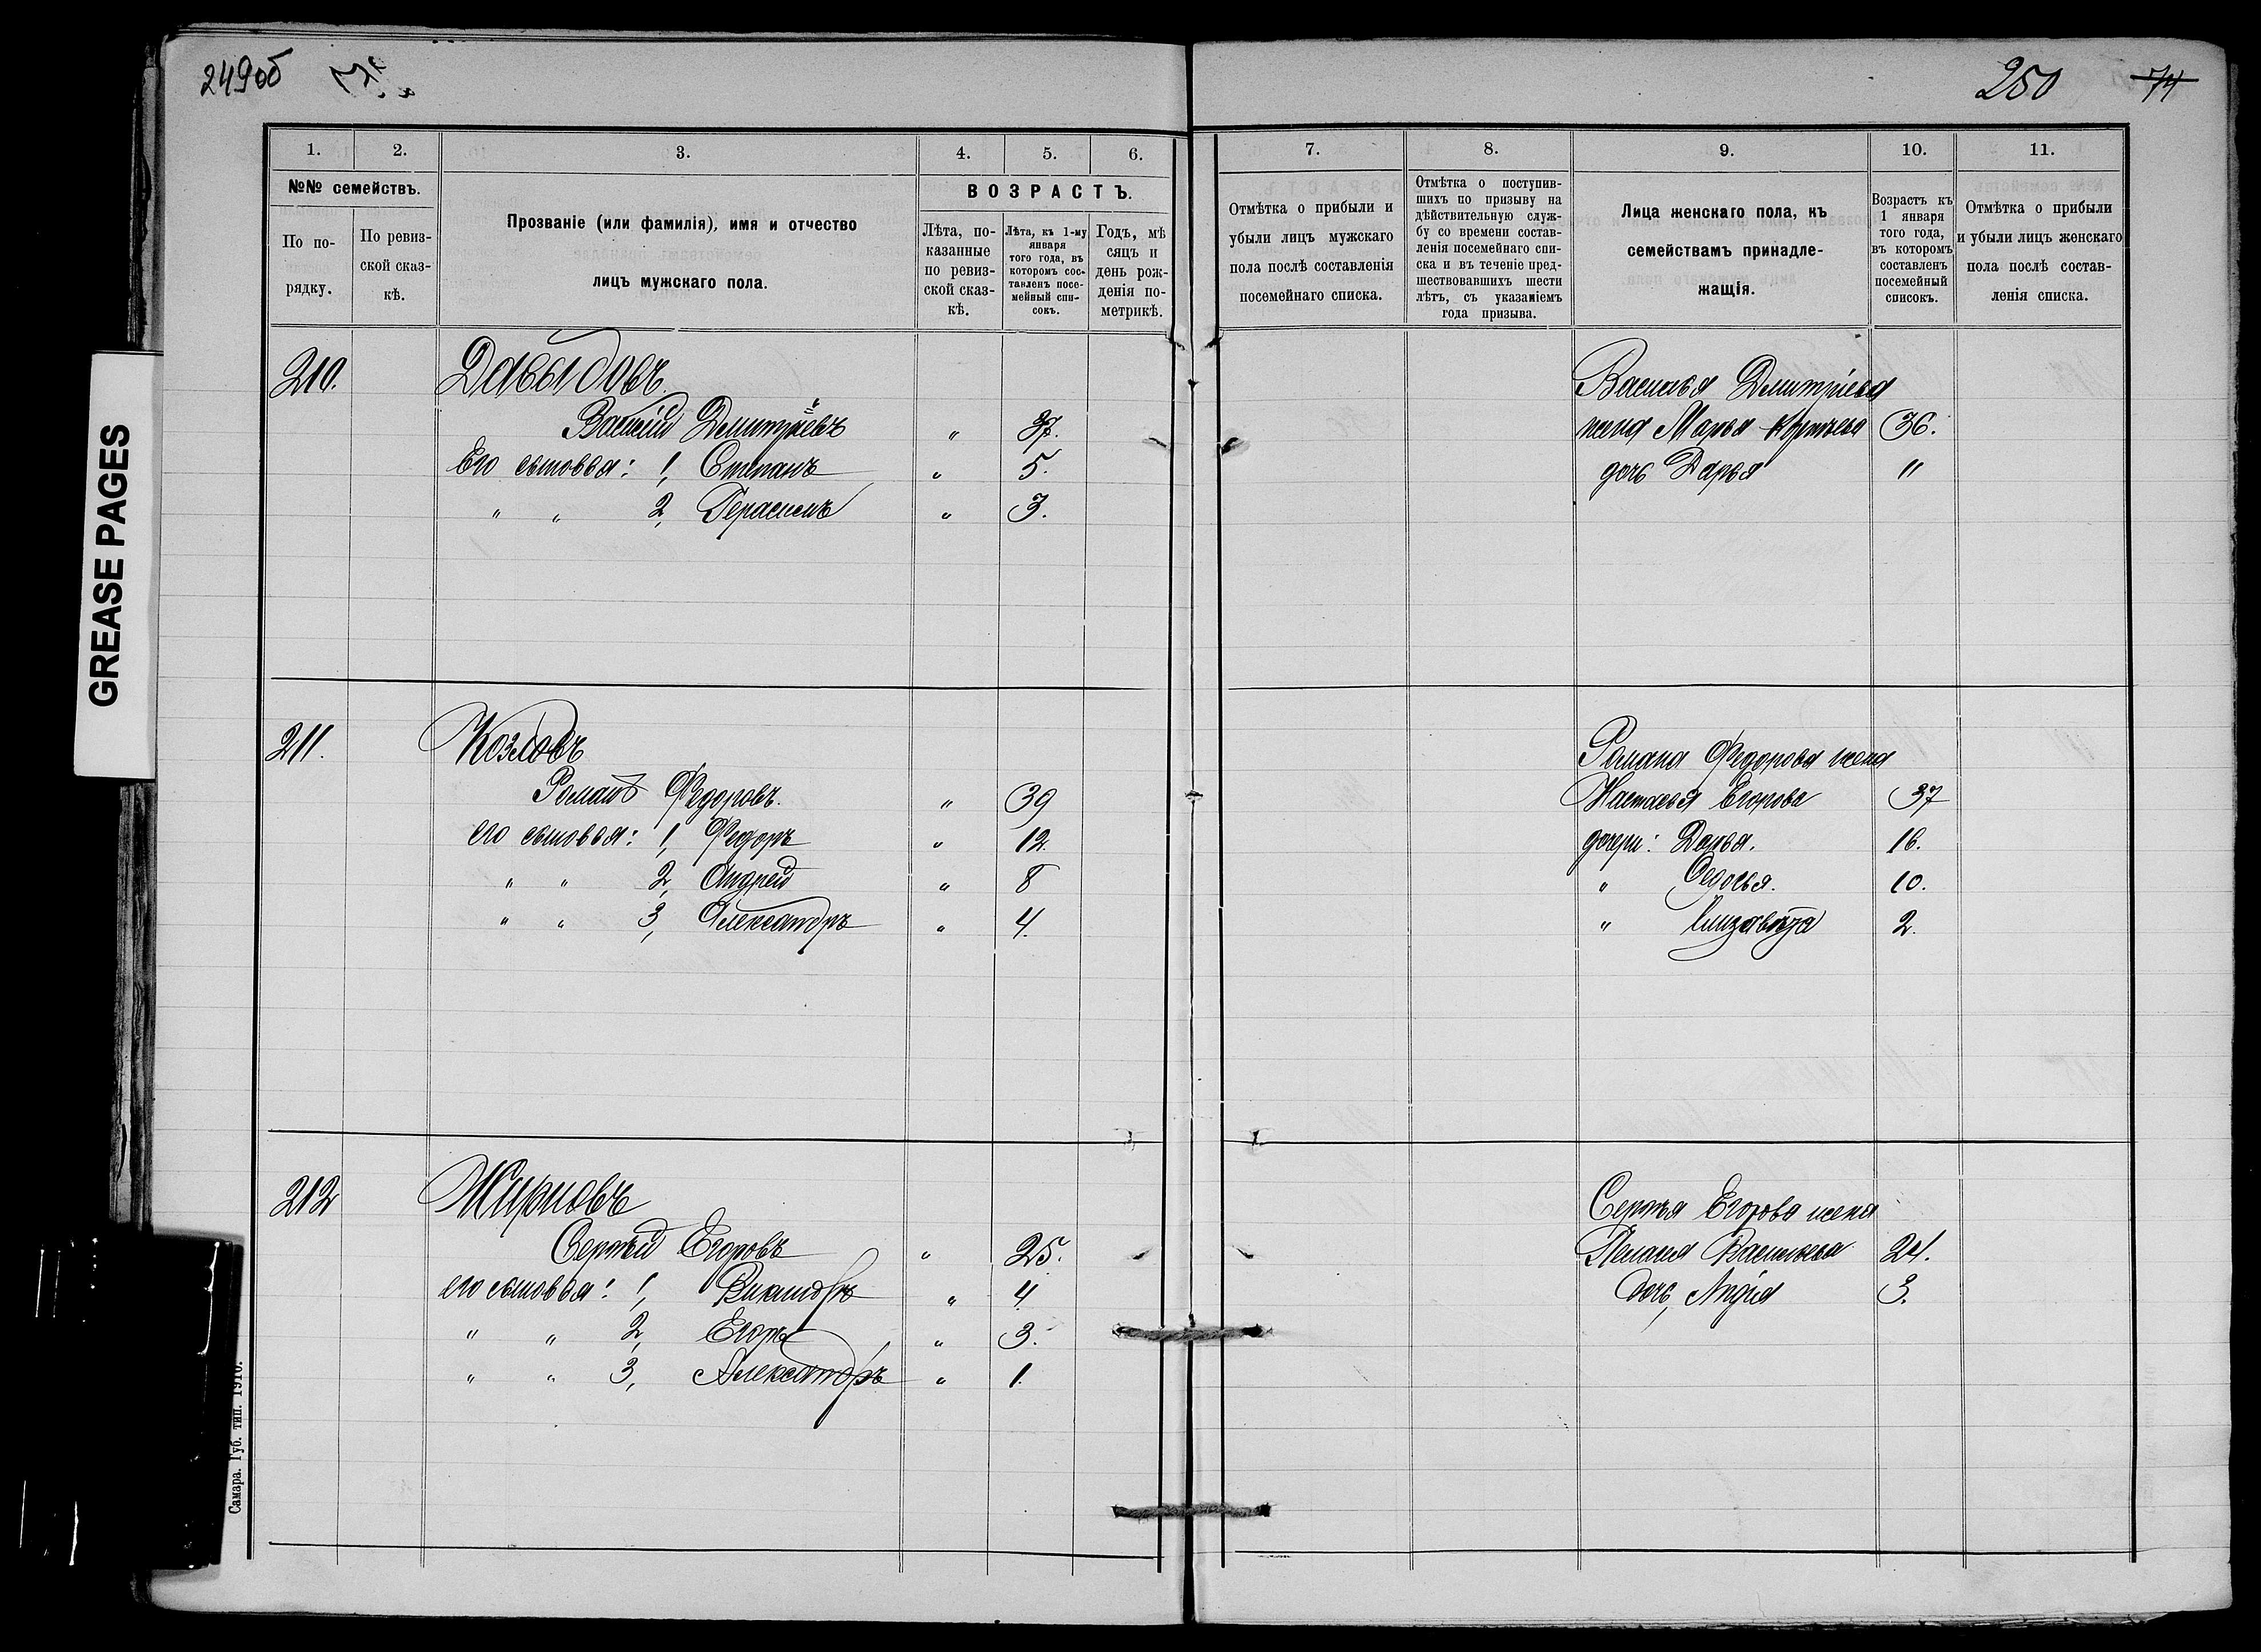 249об
250 74
GREASE PAGES
1. 2. 3. 4. 5. 6.
№№ семействъ.
По по-
рядку.
По ревиз-
ской сказ-
кѣ.
Прозваніе (или фамилія), имя и отчество
лицъ мужскаго пола.
ВОЗРАСТЪ.
Лѣта, по-
казанные
по ревиз-
ской сказ-
кѣ.
Лѣта, къ 1-му
января
того года, въ
которомъ сос-
тавленъ посе-
мейный спи-
сокъ.
Годъ, мѣ
сяцъ и
день рож-
денія по-
метрикѣ.
7. 8. 9. 10. 11.
Отмѣтка о прибыли и
убыли лицъ мужскаго
пола послѣ составленія
посемейнаго списка.
Отмѣтка о поступив-
шихъ по призыву на
дѣйствительную служ-
бу со времени состав-
ленія посемейнаго спи-
ска и въ теченіе пред-
шествовавшихъ шести
лѣтъ, съ указаніемъ
года призыва.
Лица женскаго пола, къ
семействамъ принадле-
жащія.
Возрастъ къ
1 января
того года,
въ которомъ
составленъ
посемейный
списокъ.
Отмѣтка о прибыли
и убыли лицъ женскаго
пола послѣ состав-
ленія списка.
210. Давыдовъ
Василій Дмитріевъ " 37.
Его сыновья: 1, Степанъ " 5.
" " 2, Герасимъ " 3.
Василья Дмитріева
жена Марья 36.
дочь Дарья "
211. Козловъ
Романъ Федоровъ. " 39
его сыновья: 1, Федоръ " 12
" " 2, Андрей " 8
" " 3, Александръ " 4.
Романа Федорова жена
Настасья Егорова 37
дочери: Дарья. 16.
" Федосья. 10.
" Елизавѣта 2.
212 Жирновъ
Сергѣй Егоровъ " 25.
его сыновья: 1, " 4
" " 2, Егоръ " 3.
" " 3, Александръ " 1.
Сергѣя Егорова жена
Пелагея Васильева 24.
дочь, Лидія 3.
Самара. Губ. тип. 1910.